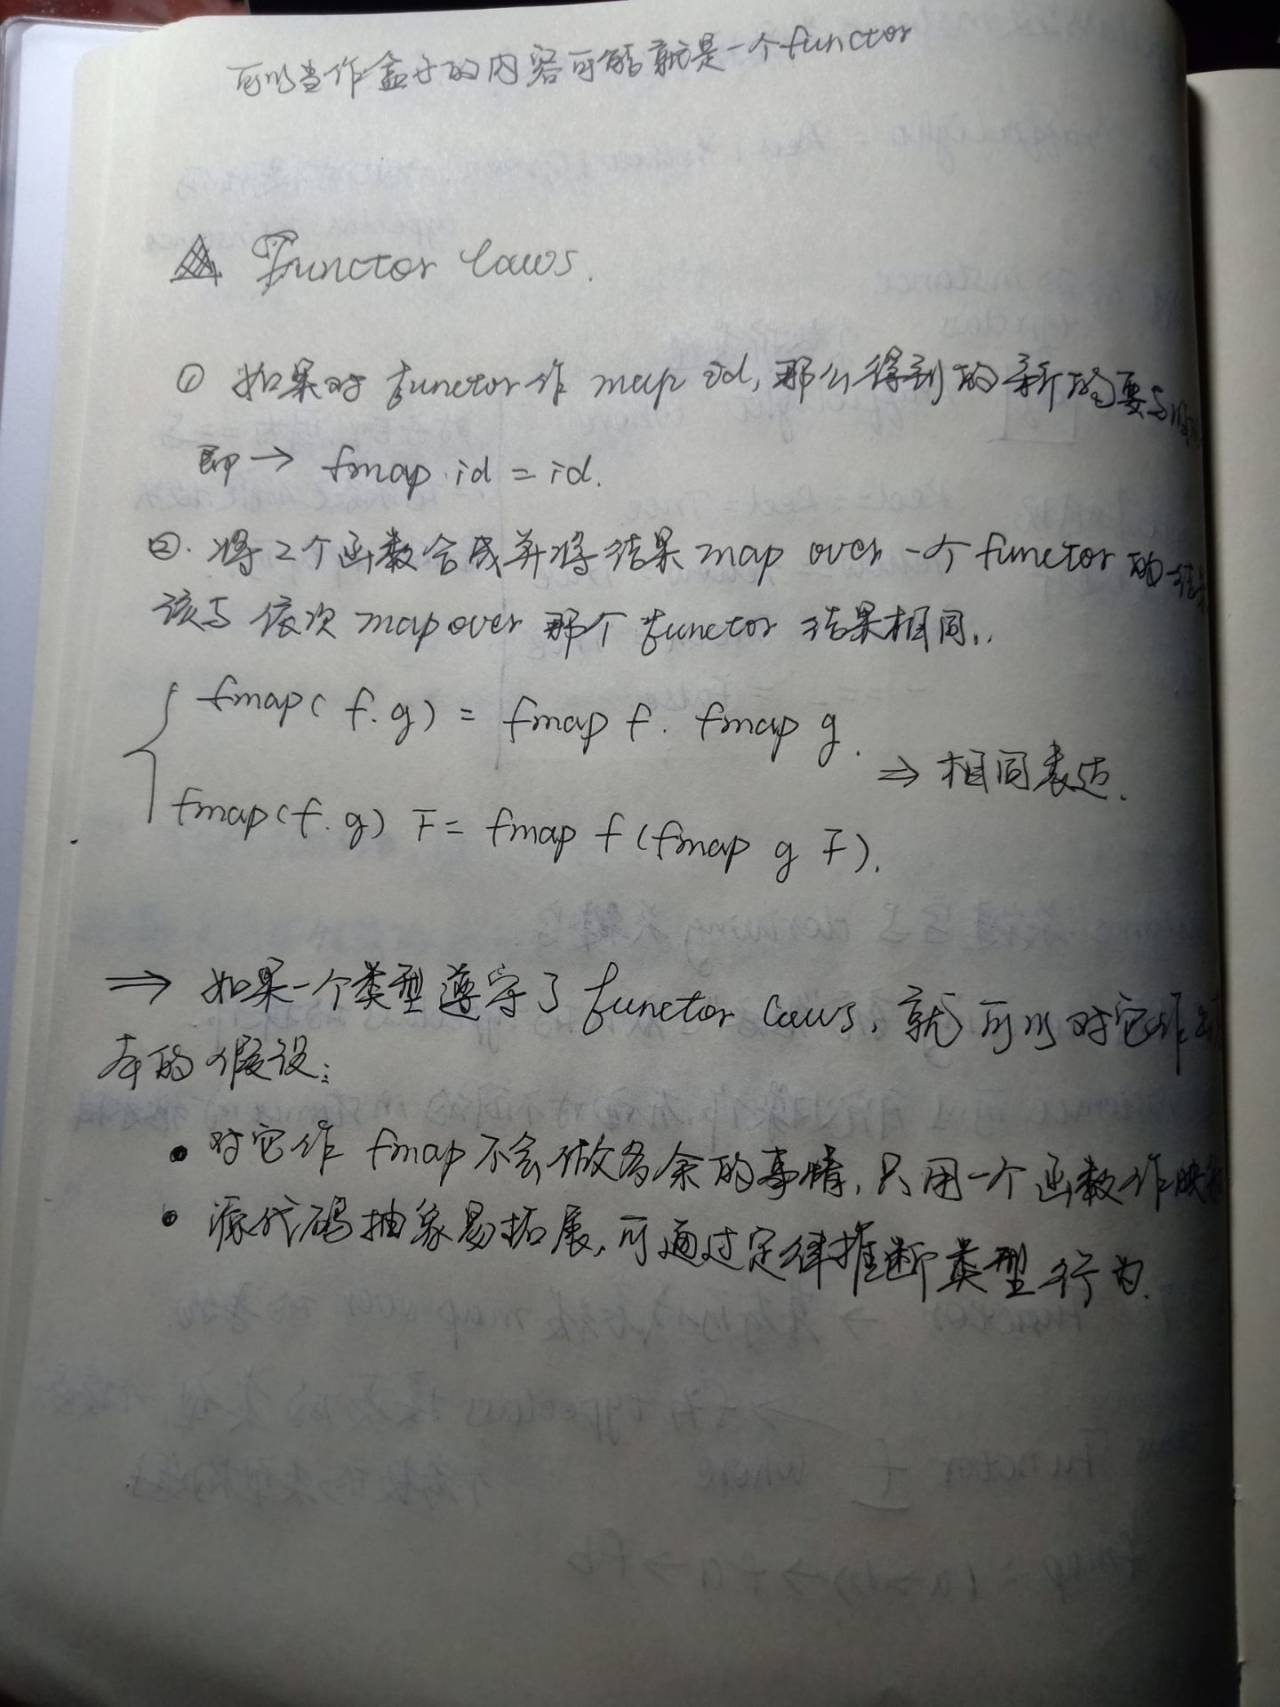 可以当作盒子的内容可能就是一个functor
Functor laws.
① 如果对 functor 作 map id, 那么得到的新的要与
即→ fmap id = id.
②. 将2个函数合成并将结果 map over 一个 functor 的结
该与依次 map over 那个 functor 结果相同..
fmap( f.g) = fmap f. fmap g.
⇒ 相同表达.
fmap(f.g) F = fmap f (fmap g F).
⇒ 如果一个类型遵守了 functor laws, 就可以对它作
本的假设:
• 对它作 fmap 不会做多余的事情, 只用一个函数作映
• 源代码抽象易拓展, 可通过定律推断类型行为.